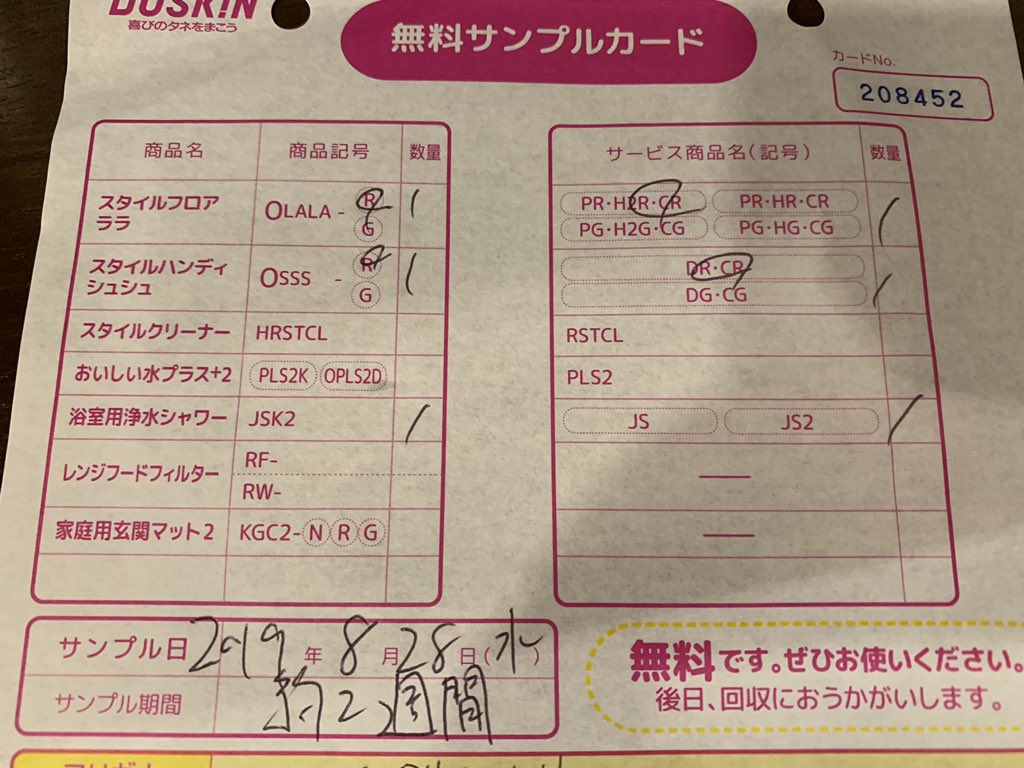 DUSKIN
喜びのタネをまこう
無料サンプルカード
カードNo.
208452
商品名 商品記号 数量
スタイルフロア
ララ
OLALA - R G 1
スタイルハンディ
シュシュ
OSSS - R G 1
スタイルクリーナー HRSTCL
おいしい水プラス+2 PLS2K OPLS2D
浴室用浄水シャワー JSK2 1
レンジフードフィルター RF-
RW-
家庭用玄関マット2 KGC2-N R G
サービス商品名(記号) 数量
PR・H2R・CR PR・HR・CR 1
PG・H2G・CG PG・HG・CG
DR・CR
DG・CG 1
RSTCL
PLS2
JS JS2 1
サンプル日 2019年8月28日(水)
サンプル期間 約2週間
無料です。ぜひお使いください。
後日、回収におうかがいします。